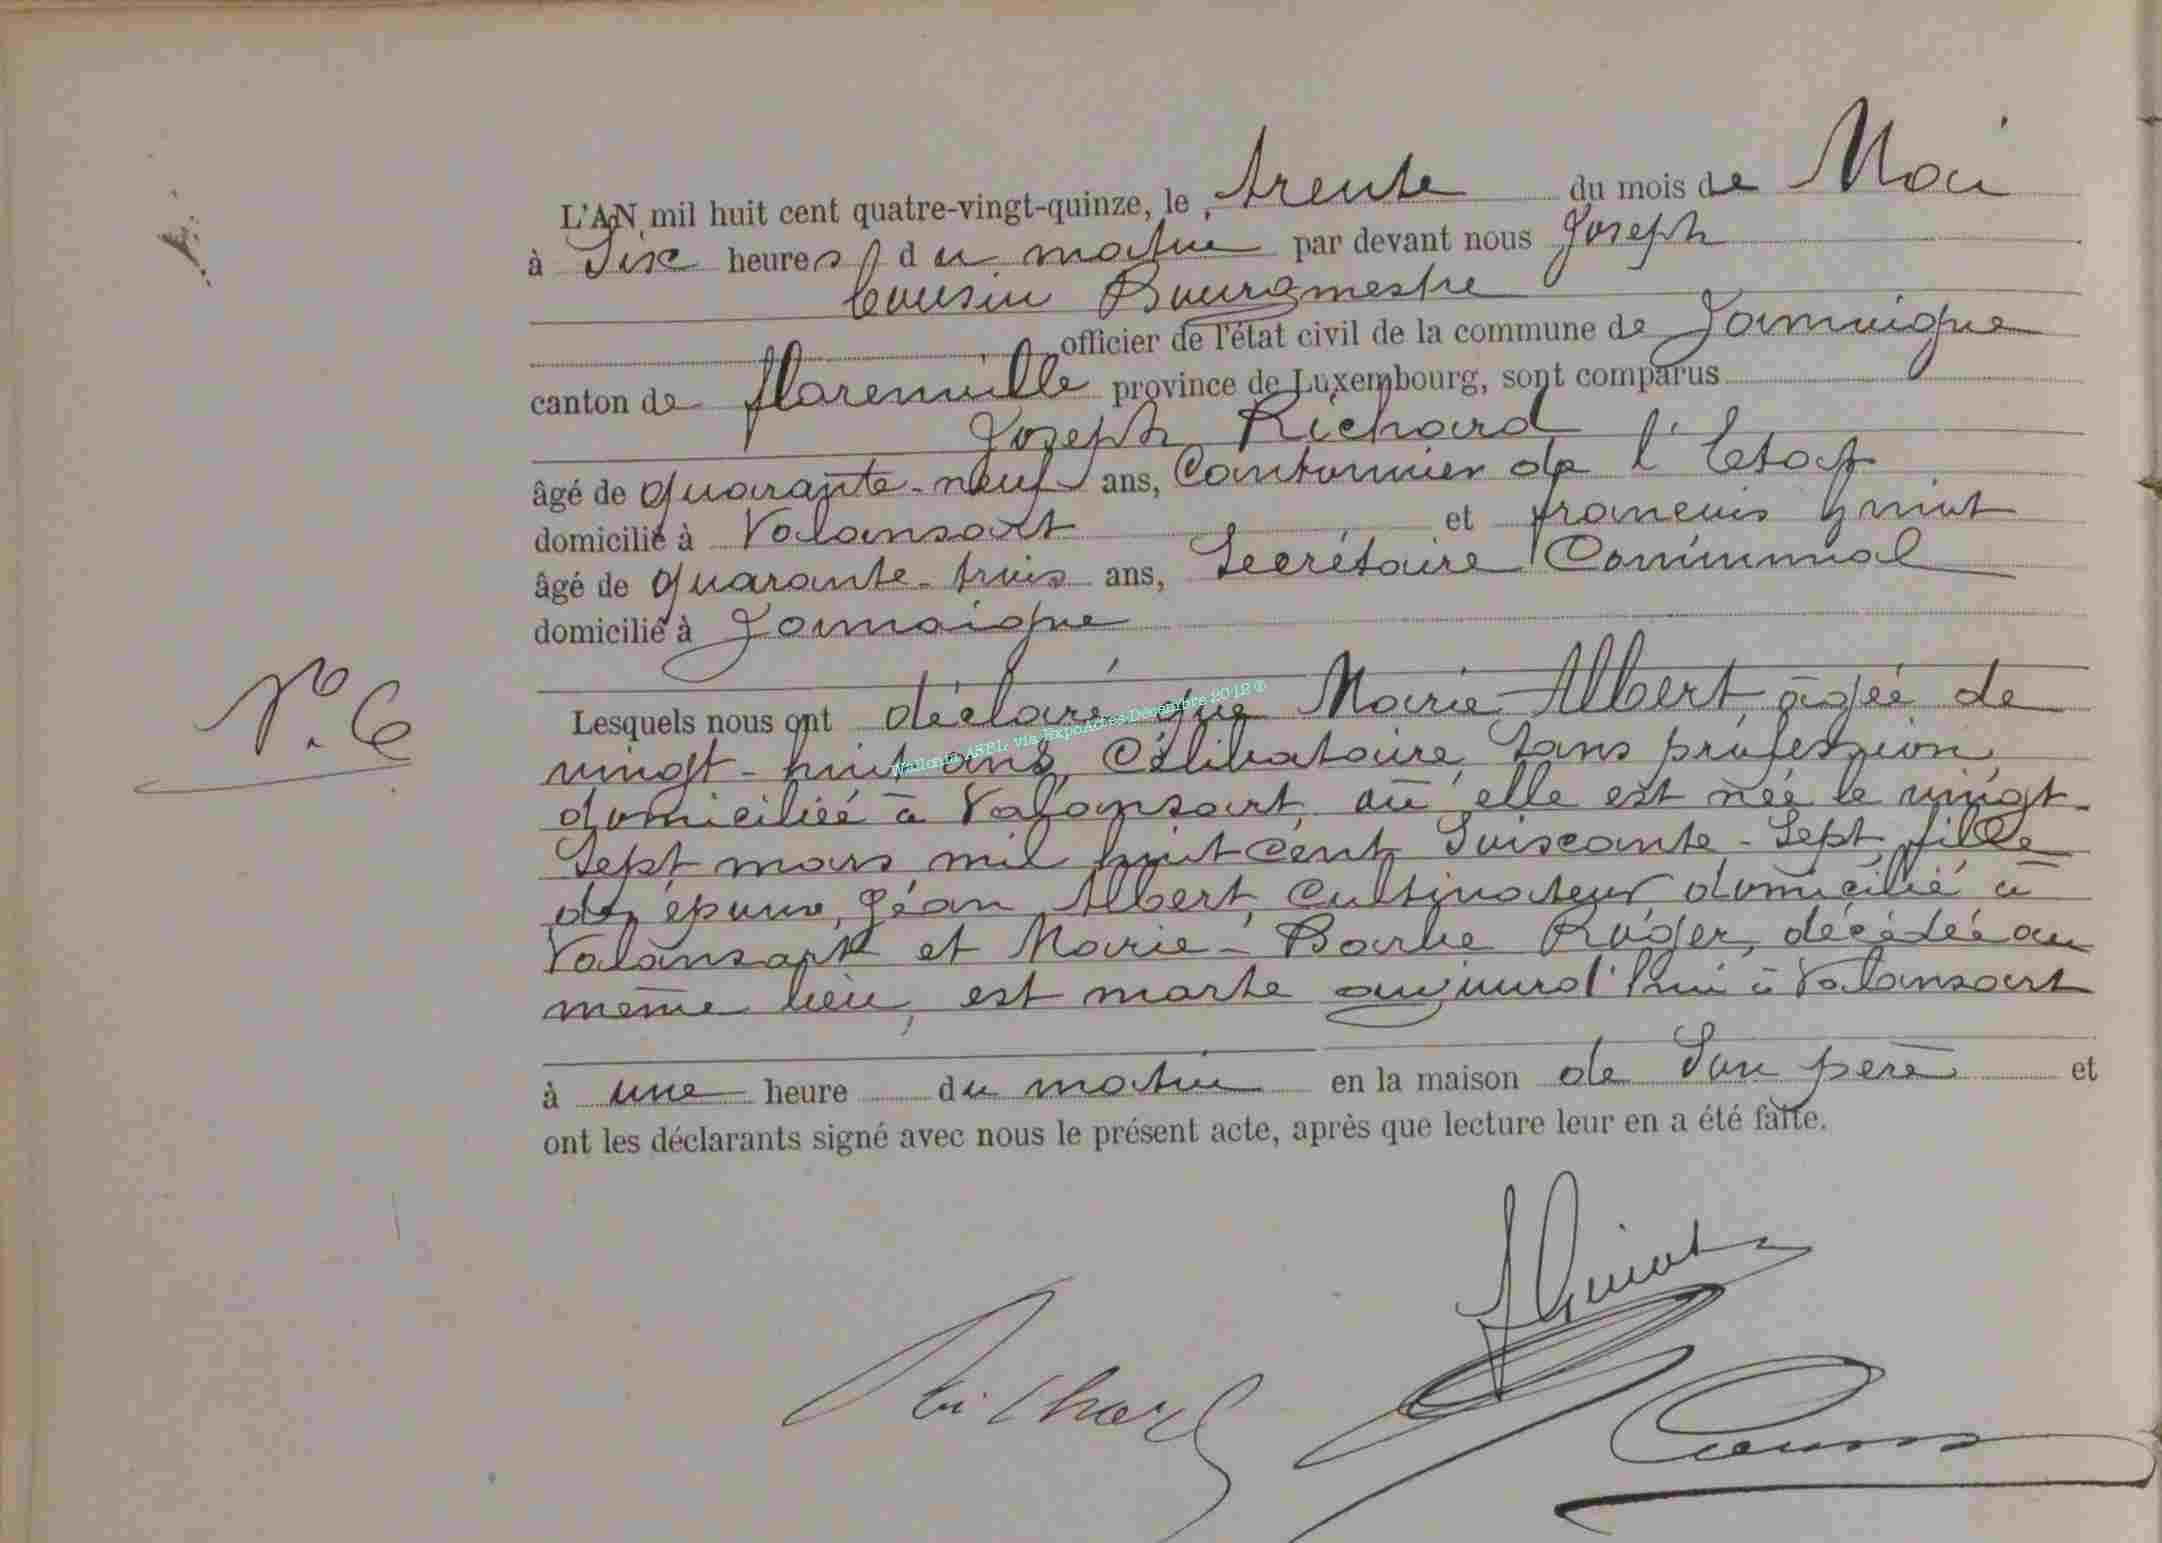 L'AN mil huit cent quatre-vingt-quinze, le trente du mois de Mai
à Six heures du matin par devant nous Joseph
Cousin Bourgmestre
officier de l'état civil de la commune de Jamoigne
canton de florenville province de Luxembourg, sont comparus
Joseph Richard
âgé de quarante-neuf ans, Cantonnier de l'Etat
domicilié à Valansart et francois Guiot
âgé de quarante-trois ans, Secrétaire Communal
domicilié à Jamoigne
N° 6
Lesquels nous ont déclaré que Marie Albert, âgée de
vingt-huit ans, Célibataire, Sans profession,
domiciliée à Valansart, où elle est née le vingt-
Sept mars mil huit Cent Soixante-Sept, fille
des époux, Jéan Albert, Cultivateur domicilié à
Valansart et Marie-Barbe Roger, décédée au
même lieu, est morte aujourd'hui à Valansart
à une heure du matin en la maison de Son père et
ont les déclarants signé avec nous le présent acte, après que lecture leur en a été faite.
Wallonia ASBL via ExpoActes Décembre 2012 ©
F Guiot
Richard
Cousin